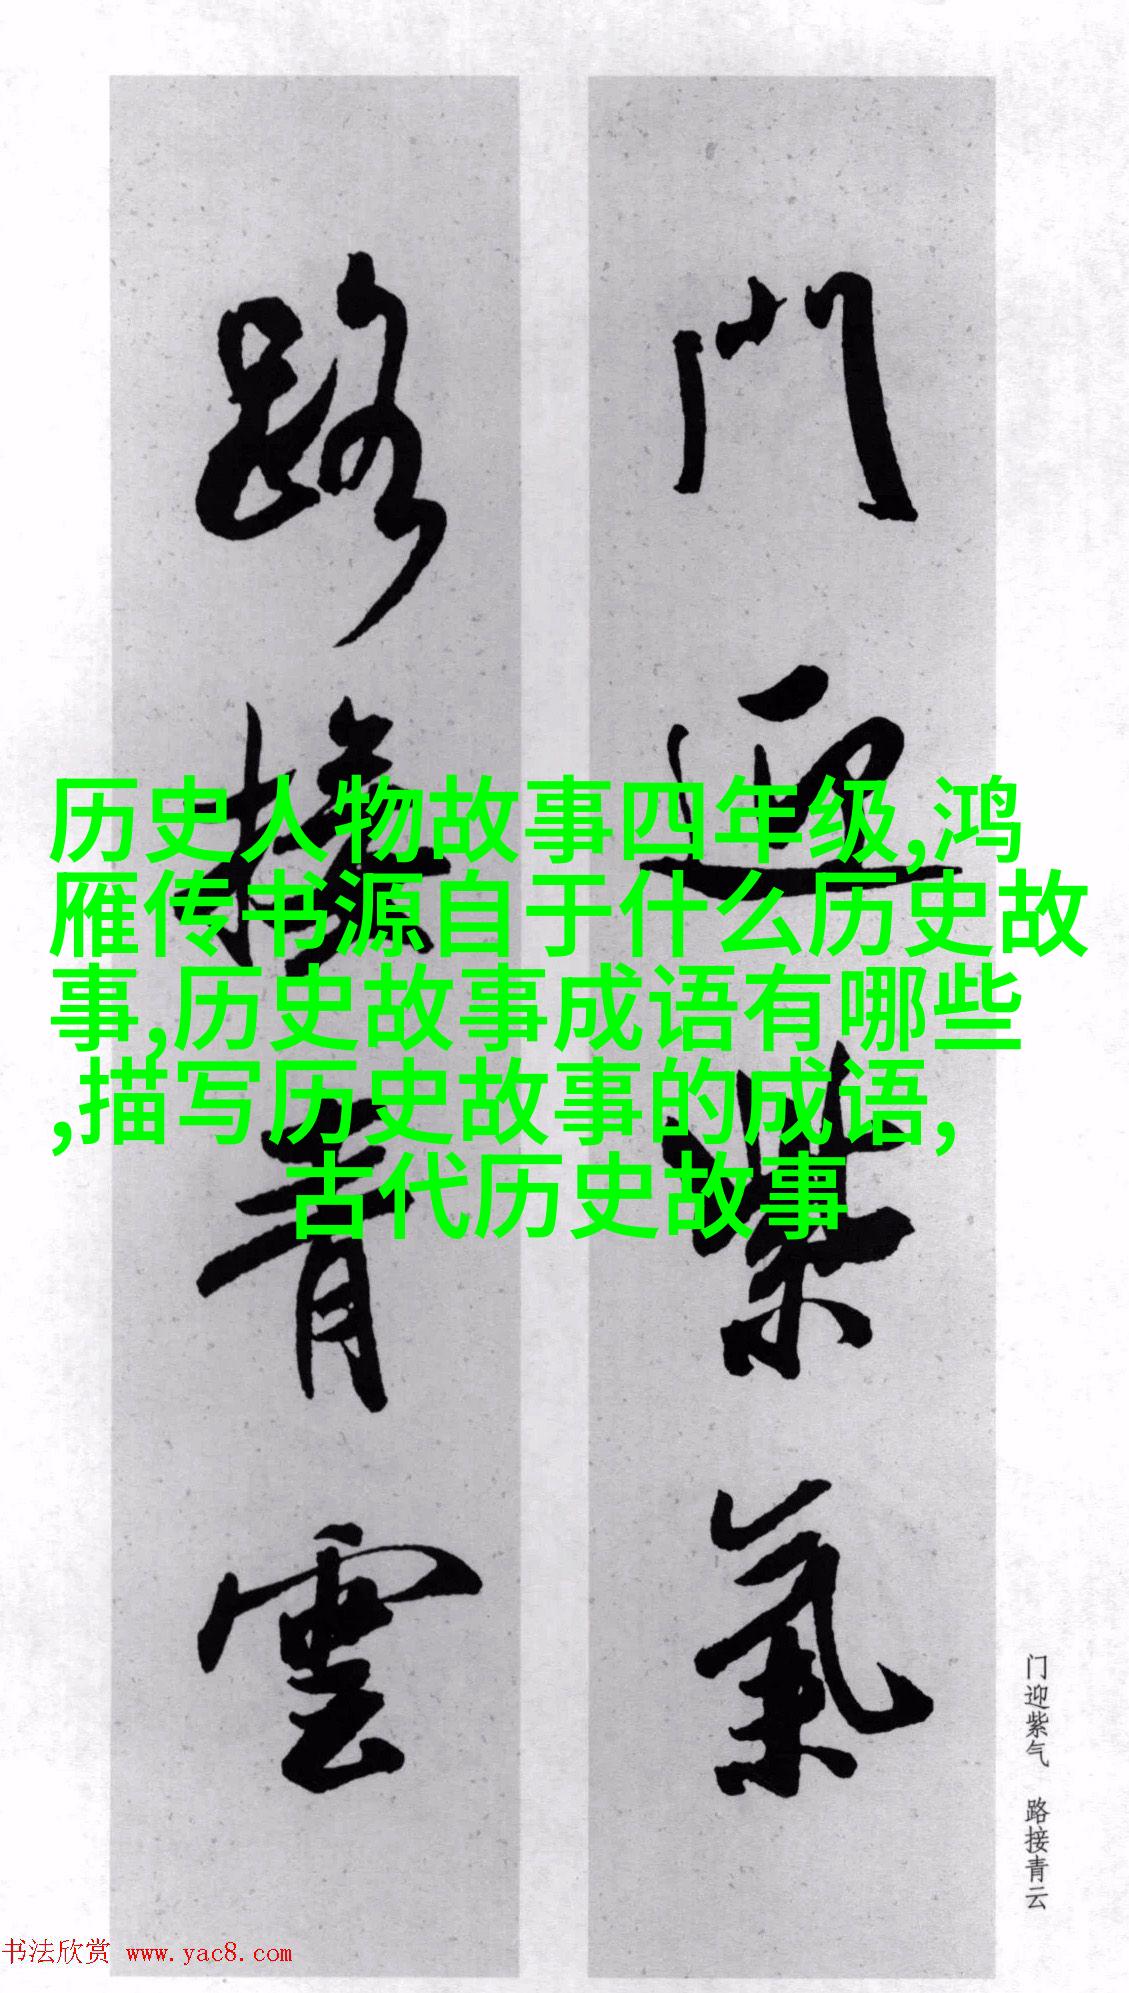 門迎紫氣
路接青雲
历史人物故事四年级,鸿
雁传书源自于什么历史故
事,历史故事成语有哪些
,描写历史故事的成语,
古代历史故事
门迎紫气 路接青云
书法欣赏 www.yac8.com